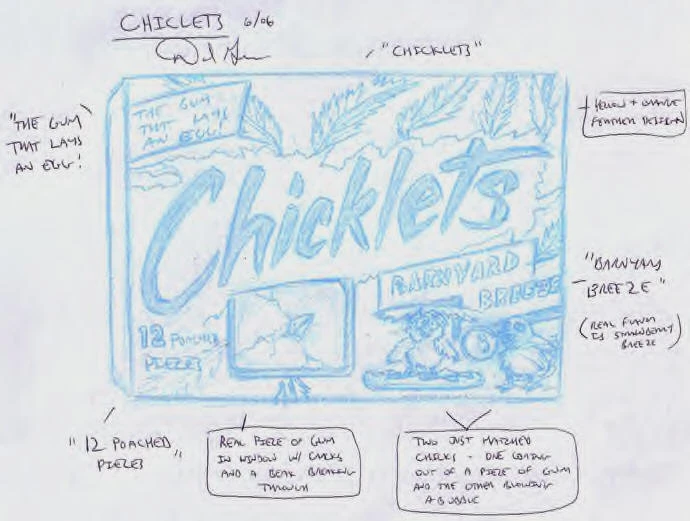 CHICLETS 6/06
"CHICKLETS"
"THE GUM
THAT LAYS
AN EGG!"
THE GUM
THAT LAYS
AN EGG!
YELLOW + ORANGE
FEATHER DESIGN
Chicklets
BARNYARD
BREEZE
"BARNYARD
BREEZE"
(REAL FLAVOR
IS STRAWBERRY
BREEZE)
12 POACHED
PIECES
"12 POACHED
PIECES"
REAL PIECE OF GUM
IN WINDOW W/ CRACKS
AND A BEAK BREAKING
THROUGH
TWO JUST HATCHED
CHICKS - ONE COMING
OUT OF A PIECE OF GUM
AND THE OTHER BLOWING
A BUBBLE